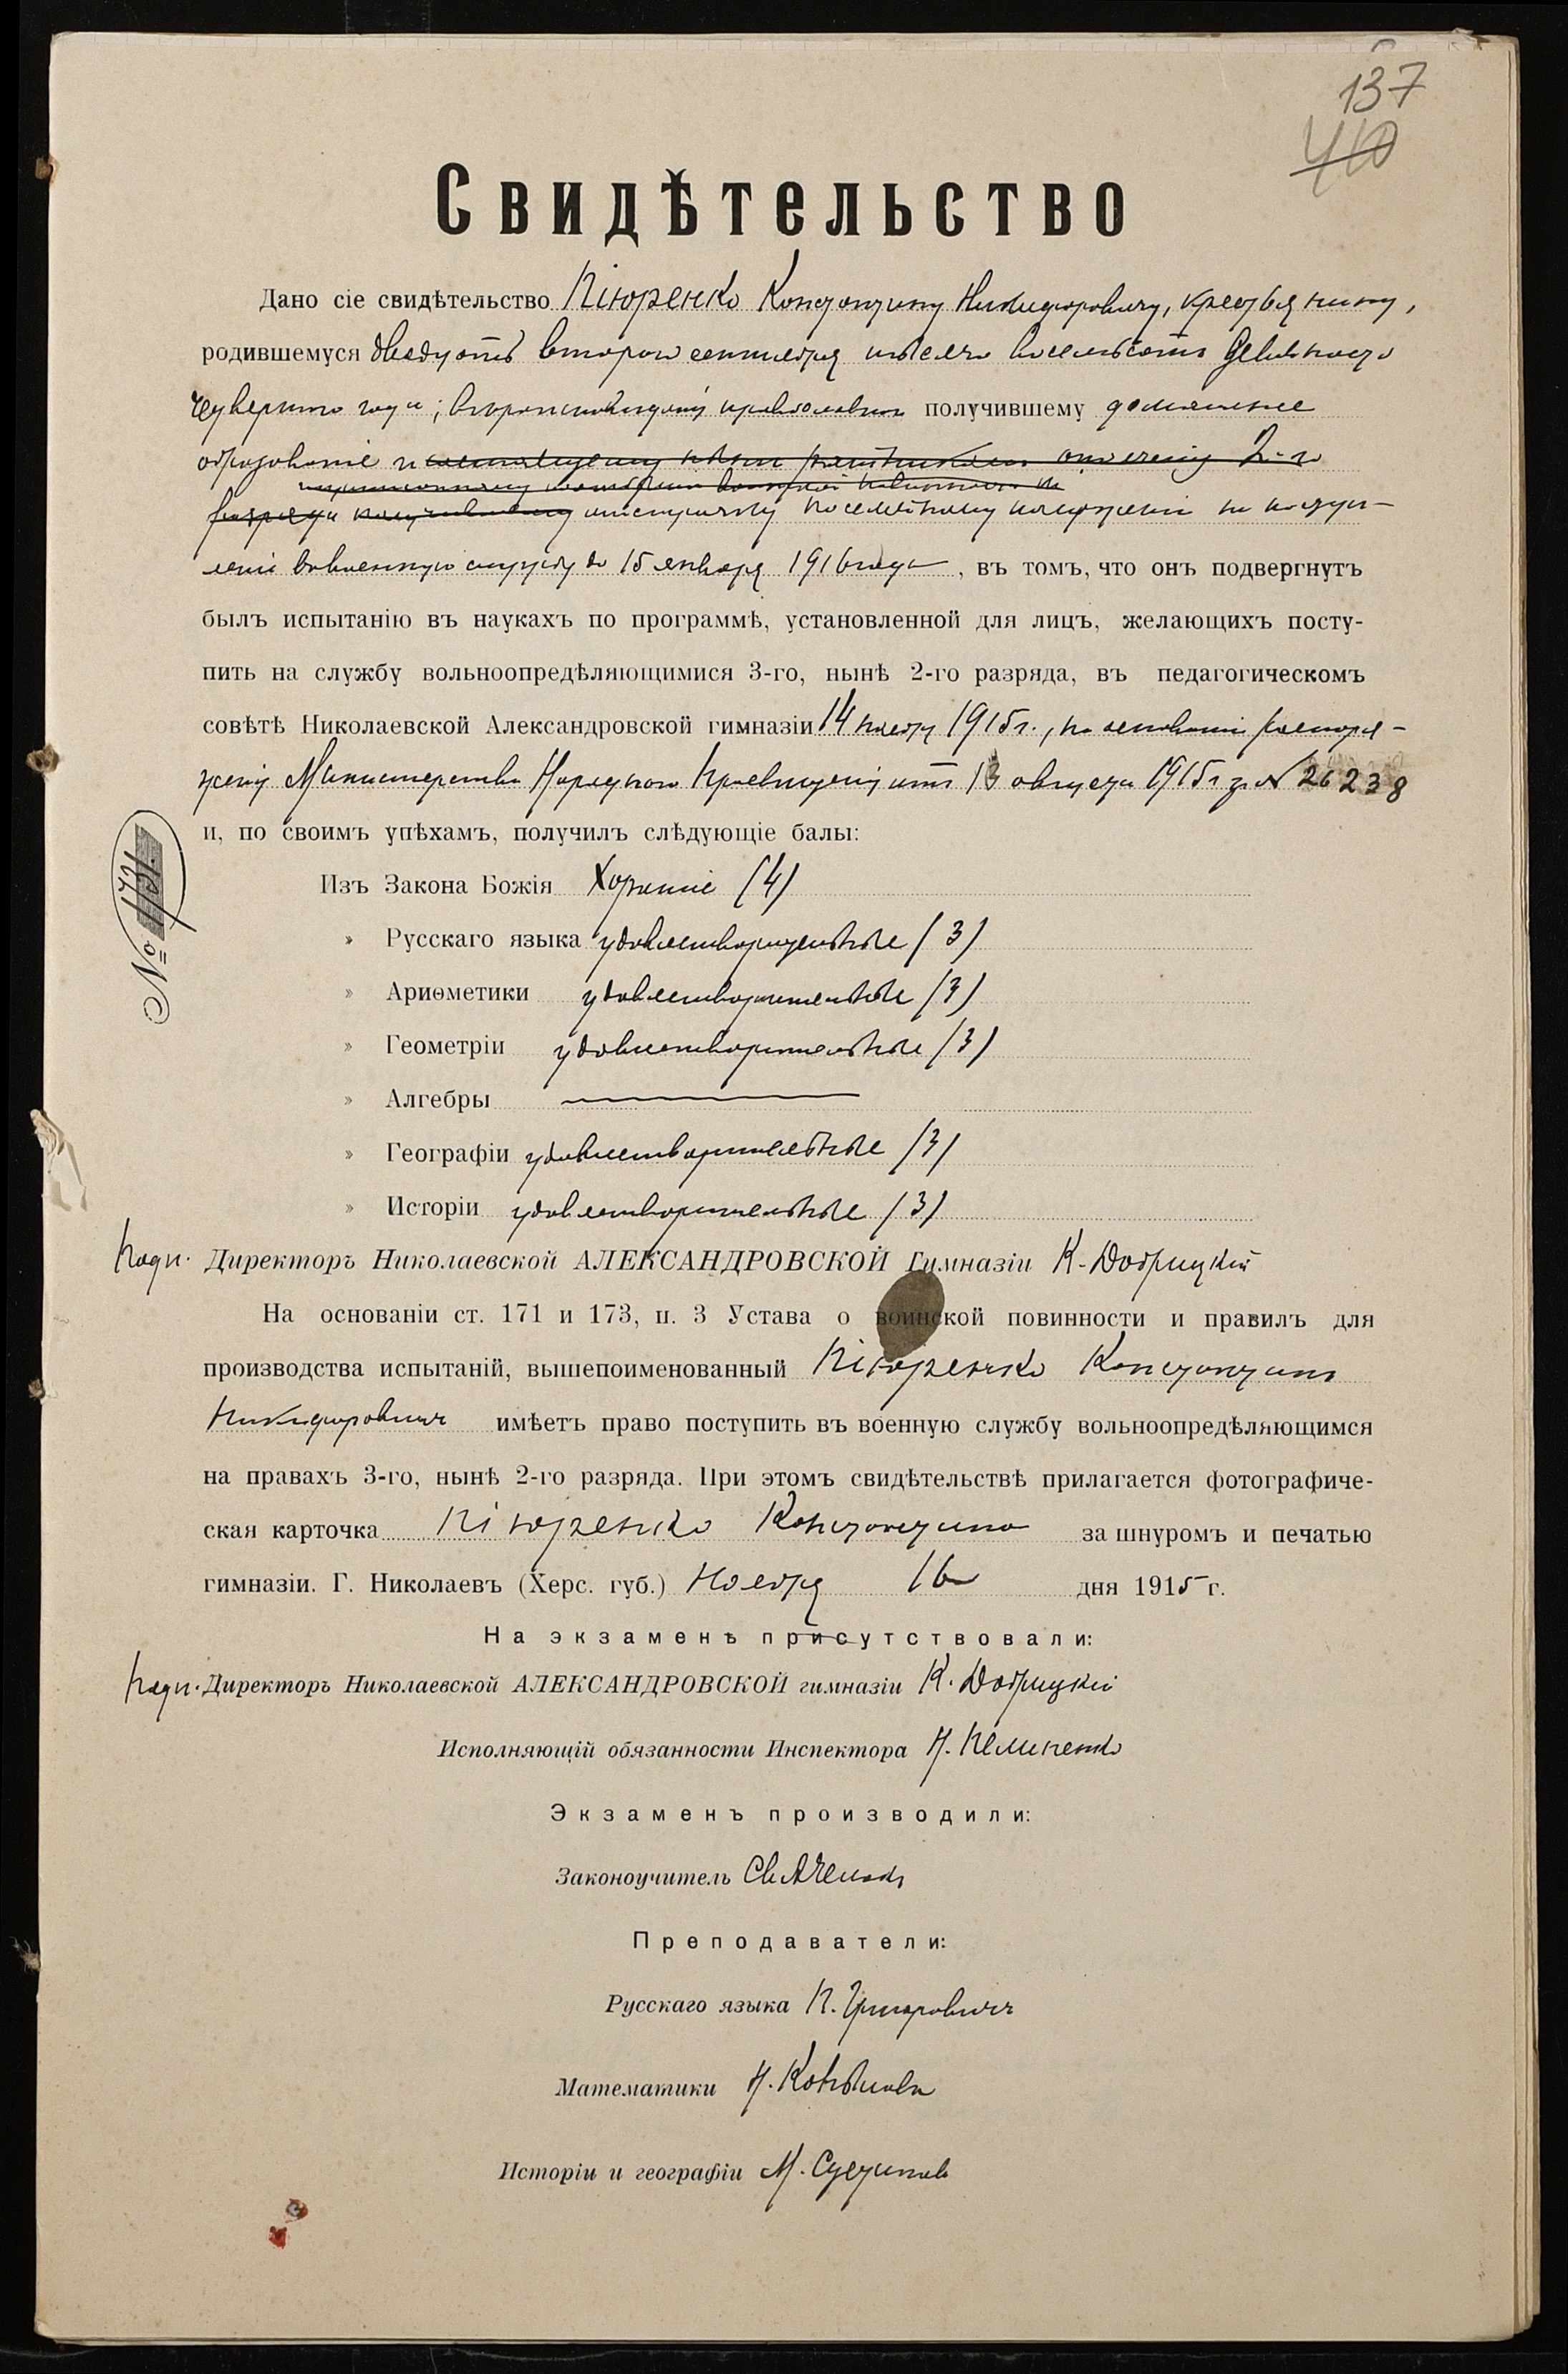 137
410
Свидѣтельство
Дано сіе свидѣтельство Піюренко Константину Никифоровичу, крестьянину,
родившемуся двадцать второго сентября тысяча восемьсотъ девяносто
четвертаго года, вѣроисповѣданія православнаго получившему домашнее
образованіе и ратникомъ ополченія 2-го
разряда отсрочку по семейному положенію на поступ-
леніе въ военную службу до 15 января 1916 года, въ томъ, что онъ подвергнутъ
былъ испытанію въ наукахъ по программѣ, установленной для лицъ, желающихъ посту-
пить на службу вольноопредѣляющимися 3-го, нынѣ 2-го разряда, въ педагогическомъ
совѣтѣ Николаевской Александровской гимназіи 14 ноября 1915 г., на основаніи распоря-
женія Министерства Народнаго Просвѣщенія отъ 13 августа 1915 г. за № 26238
и, по своимъ упѣхамъ, получилъ слѣдующіе балы:
№ 1731.
Изъ Закона Божія Хорошіе (4)
» Русскаго языка удовлетворительные (3)
» Ариѳметики удовлетворительные (3)
» Геометріи удовлетворительные (3)
» Алгебры
» Географіи удовлетворительные (3)
» Исторіи удовлетворительные (3)
Подп. Директоръ Николаевской АЛЕКСАНДРОВСКОЙ Гимназіи К. Добрицкій
На основаніи ст. 171 и 173, п. 3 Устава о воинской повинности и правилъ для
производства испытаній, вышепоименованный Піюренко Константинъ
Никифоровичъ имѣетъ право поступить въ военную службу вольноопредѣляющимся
на правахъ 3-го, нынѣ 2-го разряда. При этомъ свидѣтельствѣ прилагается фотографиче-
ская карточка Піюренко Константина за шнуромъ и печатью
гимназіи. Г. Николаевъ (Херс. губ.) Ноября 16 дня 1915 г.
На экзаменѣ присутствовали:
Подп. Директоръ Николаевской АЛЕКСАНДРОВСКОЙ гимназіи К. Добрицкій
Исполняющій обязанности Инспектора
Экзаменъ производили:
Законоучитель
Преподаватели:
Русскаго языка П. Григоровичъ
Математики
Исторіи и географіи М.